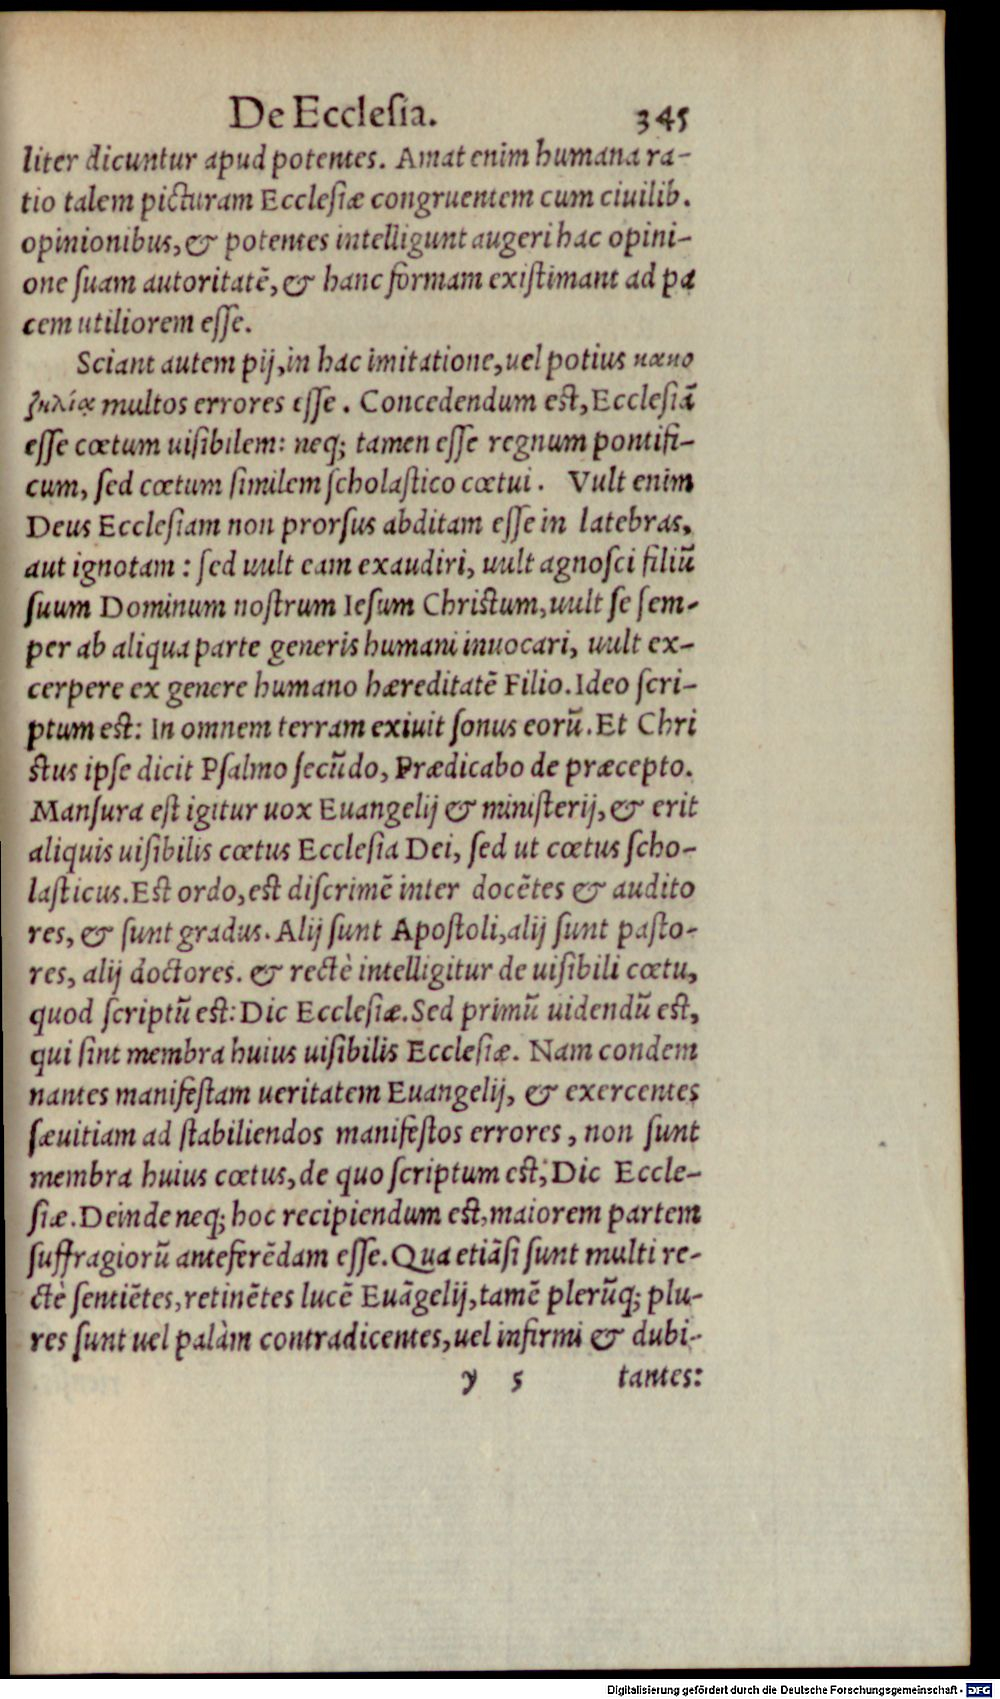 De Ecclesia. 345
liter dicuntur apud potentes. Amat enim humana ra-
tio talem picturam Ecclesiæ congruentem cum ciuilib.
opinionibus, & potentes intelligunt augeri hac opini-
one suam autoritatẽ, & hanc formam existimant ad pa
cem utiliorem esse.
Sciant autem pij, in hac imitatione, uel potius κακο
ζηλίᾳ multos errores esse. Concedendum est, Ecclesiã
esse cœtum uisibilem: neq; tamen esse regnum pontifi-
cum, sed cœtum similem scholastico cœtui. Vult enim
Deus Ecclesiam non prorsus abditam esse in latebras,
aut ignotam: sed uult eam exaudiri, uult agnosci filiũ
suum Dominum nostrum Iesum Christum, uult se sem-
per ab aliqua parte generis humani inuocari, uult ex-
cerpere ex genere humano hæreditatẽ Filio. Ideo scri-
ptum est: In omnem terram exiuit sonus eorũ. Et Chri
stus ipse dicit Psalmo secũdo, Prædicabo de præcepto.
Mansura est igitur uox Euangelij & ministerij, & erit
aliquis uisibilis cœtus Ecclesia Dei, sed ut cœtus scho-
lasticus. Est ordo, est discrimẽ inter docẽtes & audito
res, & sunt gradus. Alij sunt Apostoli, alij sunt pasto-
res, alij doctores. & rectè intelligitur de uisibili cœtu,
quod scriptũ est: Dic Ecclesiæ. Sed primũ uidendũ est,
qui sint membra huius uisibilis Ecclesiæ. Nam condem
nantes manifestam ueritatem Euangelij, & exercentes
sæuitiam ad stabiliendos manifestos errores, non sunt
membra huius cœtus, de quo scriptum est; Dic Eccle-
siæ. Deinde neq; hoc recipiendum est, maiorem partem
suffragiorũ anteferẽdam esse. Qua etiãsi sunt multi re-
ctè sentiẽtes, retinẽtes lucẽ Euãgelij, tamẽ plerũq; plu-
res sunt uel palàm contradicentes, uel infirmi & dubi-
y 5 tantes:
Digitalisierung gefördert durch die Deutsche Forschungsgemeinschaft - DFG